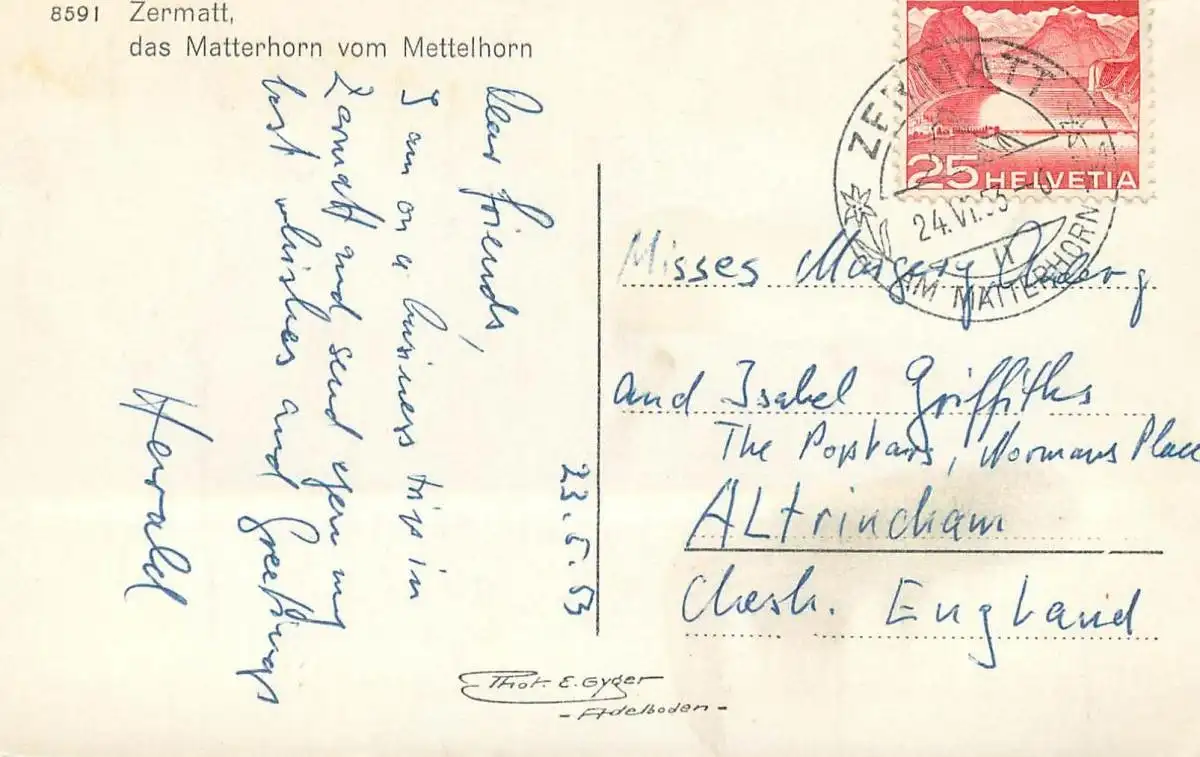 8591 Zermatt,
das Matterhorn vom Mettelhorn
23.5.53
Dear friends,
I am on a business trip in
Zermatt and send you my
best wishes and Greetings
Herald
25 HELVETIA
ZERMATT
24.VI.53
AM MATTERHORN
Misses Margery
and Isabel Griffiths
The Poplars, Normans Place
ALtrincham
Chesh. England
Phot. E. Gyger
- Adelboden -